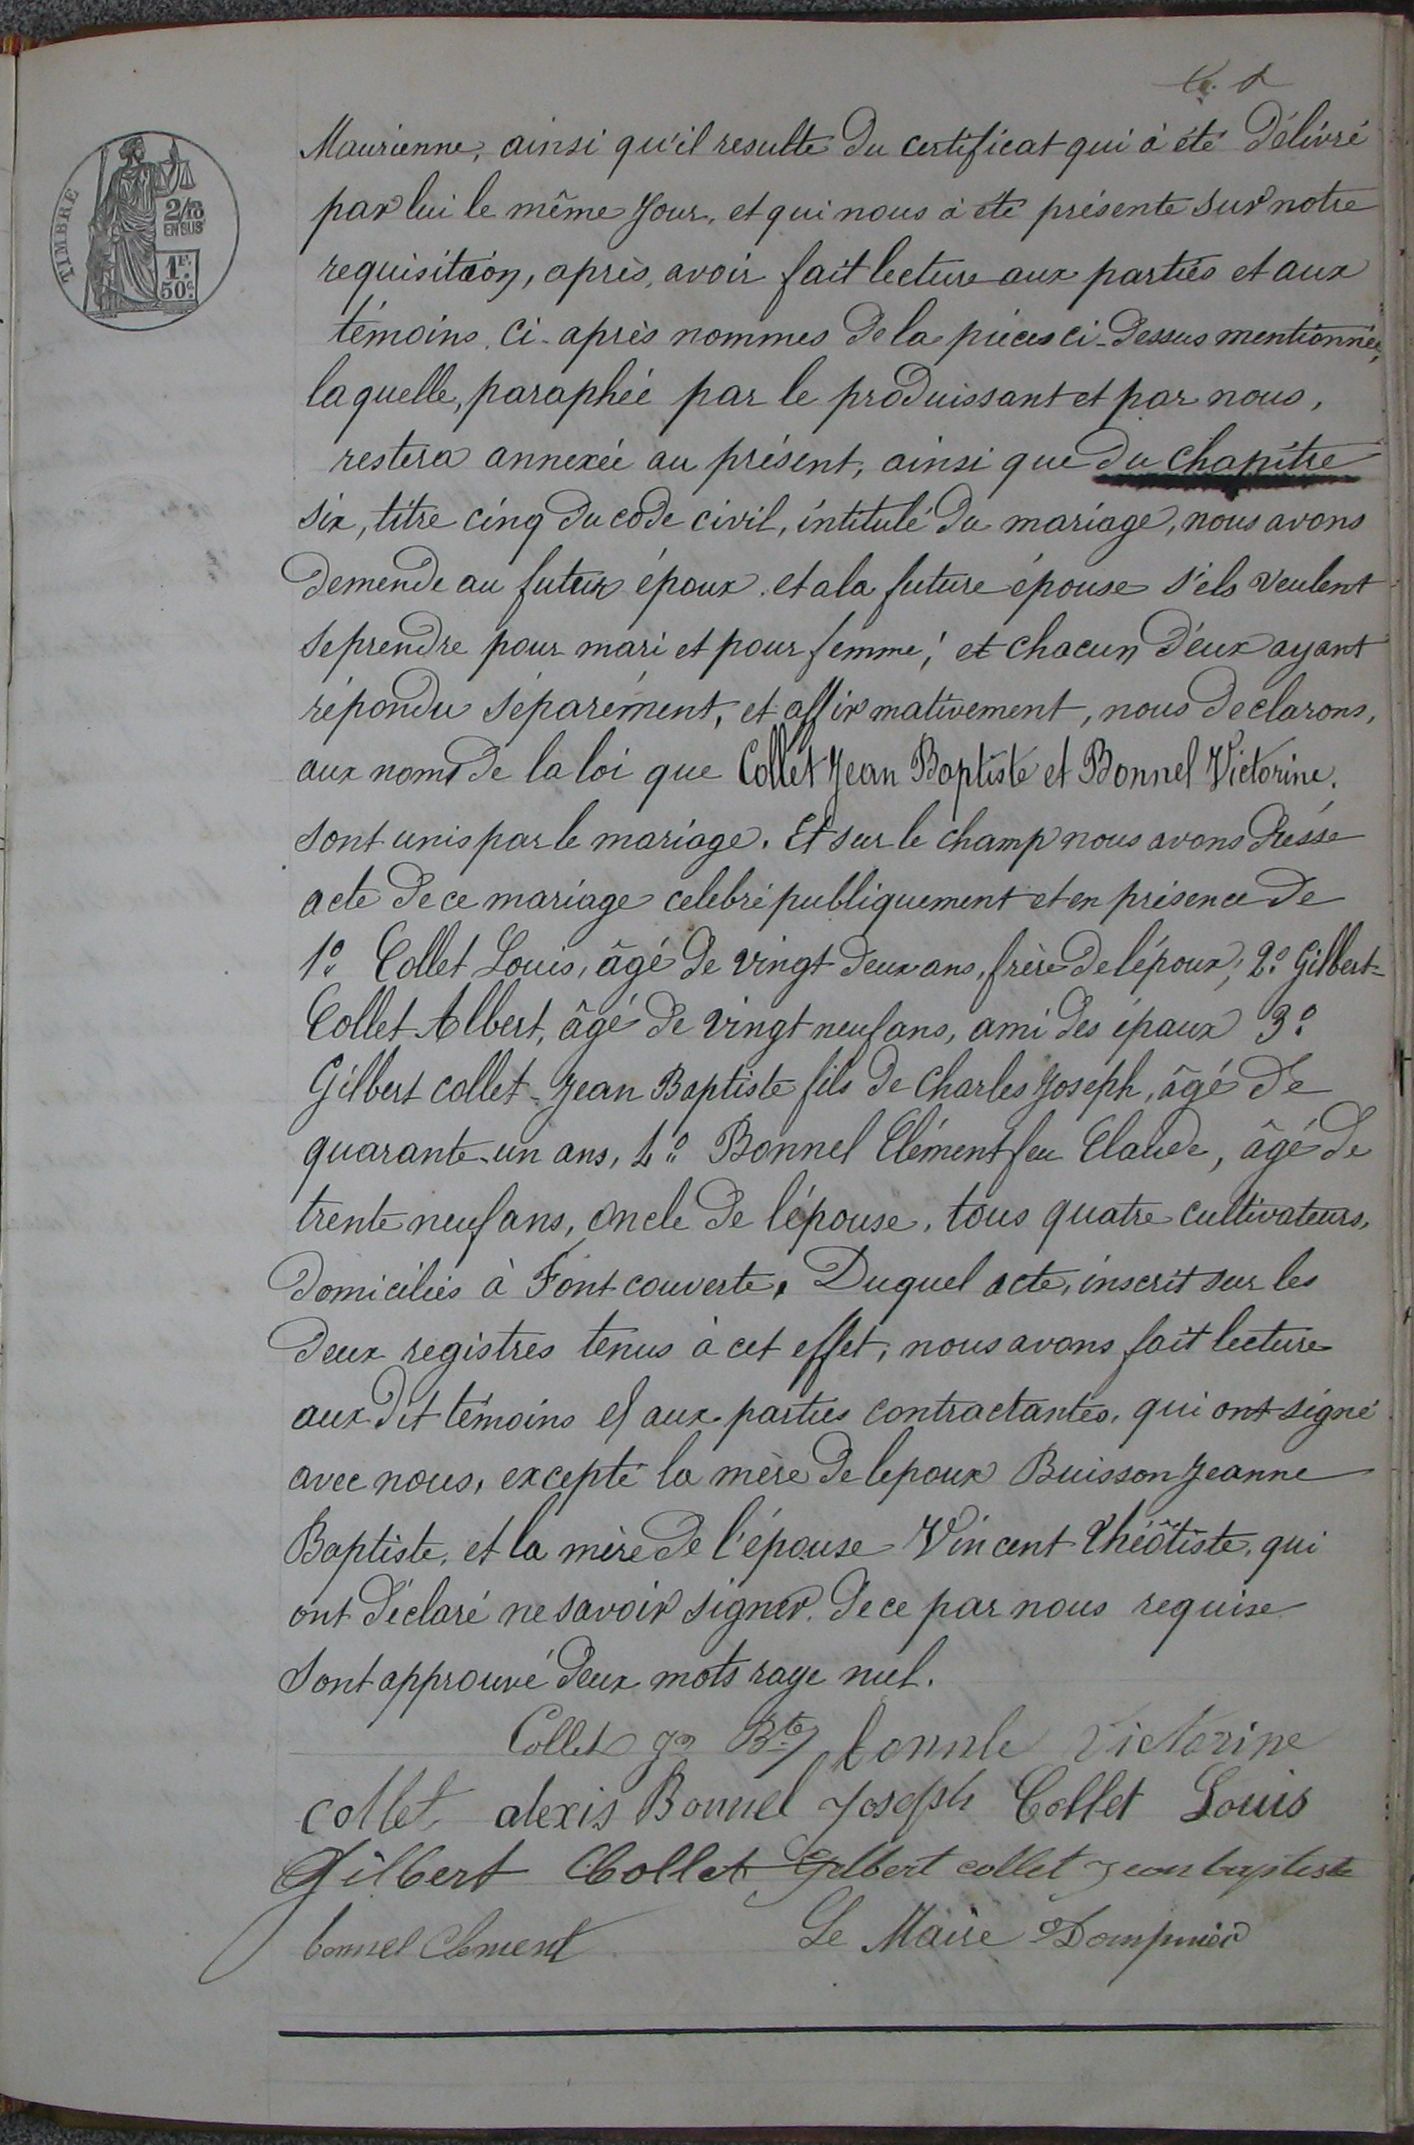 TIMBRE
2/10
EN SUS
1F.
50c.
Maurienne, ainsi qu'il resulte du certificat qui à été délivré
par lui le même Jour, et qui nous à été présente sur notre
requisition, après, avoir fait lecture aux parties et aux
témoins, ci-après nommes de la pièces ci-dessus mentionnée,
laquelle, paraphée par le produissant et par nous,
restera annexée au présent, ainsi que du chapitre
six, titre cinq du code civil, intitulé du mariage, nous avons
demende au futur époux et a la future épouse s'els veulent
se prendre pour mari et pour femme; et chacun d'eux ayant
répondu séparément, et affirmativement, nous declarons,
aux noms de la loi que Collet Jean Baptiste et Bonnel Victorine.
sont unis par le mariage. Et sur le champ nous avons dressé
acte de ce mariage celebré publiquement et en présence de
1º Collet Louis, âgé de vingt deux ans, frère de l'époux; 2º Gilbert-
Collet Albert, âgé de vingt neuf ans, ami des épaux 3º
Gilbert collet-Jean Baptiste fils de Charles Joseph, âgé de
quarante-un ans, 4º Bonnel Clément feu Claude, âgé de
trente neuf ans, oncle de l'épouse, tous quatre cultivateurs,
domiciliés à Fontcouverte. Duquel acte, inscrit sur les
deux registres tenus à cet effet, nous avons fait lecture
aux dit témoins et aux parties contractantes, qui ont signé
avec nous, excepté la mère de lepoux Buisson Jeanne
Baptiste, et la mère de l'épouse Vincent Théotiste, qui
ont déclaré ne savoir signer. de ce par nous requise
sont approuvé deux mots raye nul.
Collet Jn Bte bonnle Victorine
collet alexis Bonnel Joseph Collet Louis
Gilbert Collet Gilbert collet Jean baptiste
bonnel Clement Le Maire Dompnier